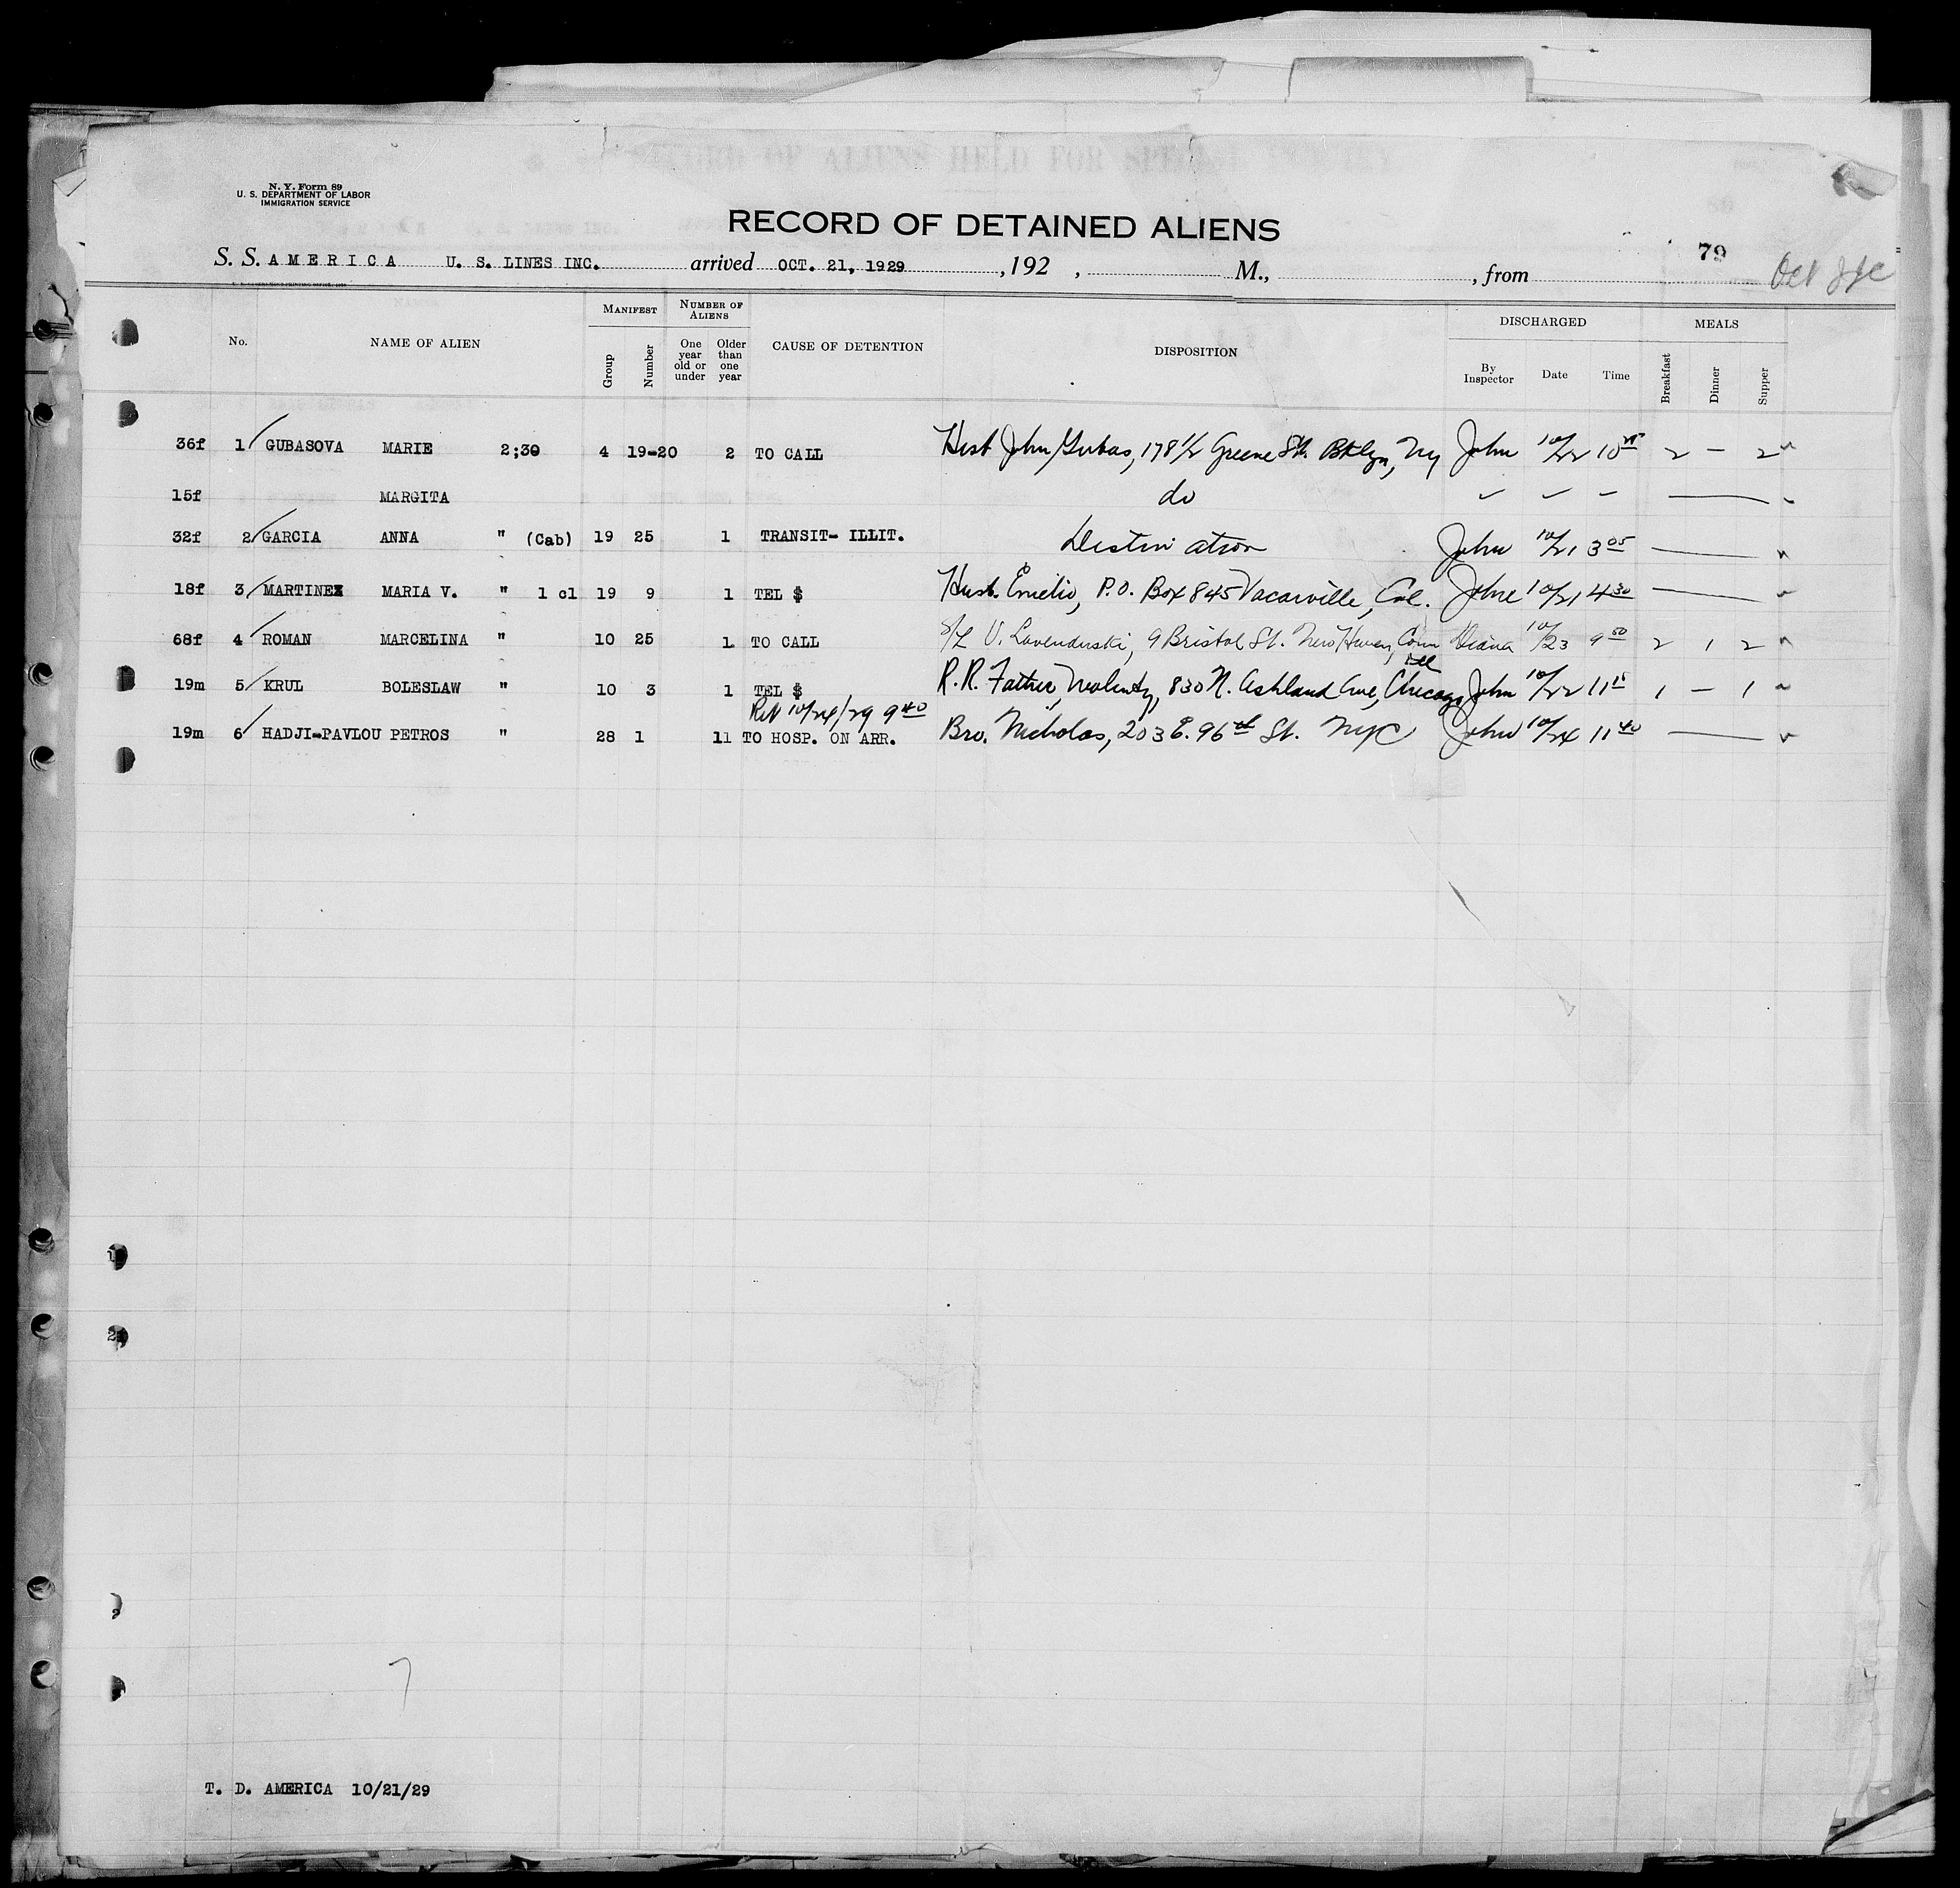 RECORD OF ALIENS HELD FOR SPECIAL INQUIRY
N. Y. Form 89
U. S. DEPARTMENT OF LABOR
IMMIGRATION SERVICE
RECORD OF DETAINED ALIENS
79
S. S. AMERICA U. S. LINES INC. arrived OCT. 21, 1929, 192 , M., , from
No. NAME OF ALIEN MANIFEST Group Number NUMBER OF ALIENS One year old or under Older than one year CAUSE OF DETENTION DISPOSITION DISCHARGED By Inspector Date Time MEALS Breakfast Dinner Supper
36f 1 GUBASOVA MARIE 2;30 4 19-20 2 TO CALL Husb John Gubas, 178 1/2 Greene St. Bklyn, Ny John 10/22 10 2 – 2
15f MARGITA do
32f 2 GARCIA ANNA " (Cab) 19 25 1 TRANSIT- ILLIT. Destination John 10/21 3 05
18f 3 MARTINEZ MARIA V. " 1 cl 19 9 1 TEL $ Husb. Emilio, P.O. Box 845 Vacarville, Cal. John 10/21 4 30
68f 4 ROMAN MARCELINA " 10 25 1 TO CALL s/L V. 9 Bristol St. New Haven, Conn 10/23 9 50 2 1 2
19m 5 KRUL BOLESLAW " 10 3 1 TEL $ R.R. Father, 830 N. Ashland Ave, Chicago Ill John 10/22 11 15 1 – 1
Ret 10/24/29 9 40
19m 6 HADJI-PAVLOU PETROS " 28 1 11 TO HOSP. ON ARR. Bro. Nicholas, 203 E. 96th St. NYC John 10/24 11 40
7
T. D. AMERICA 10/21/29